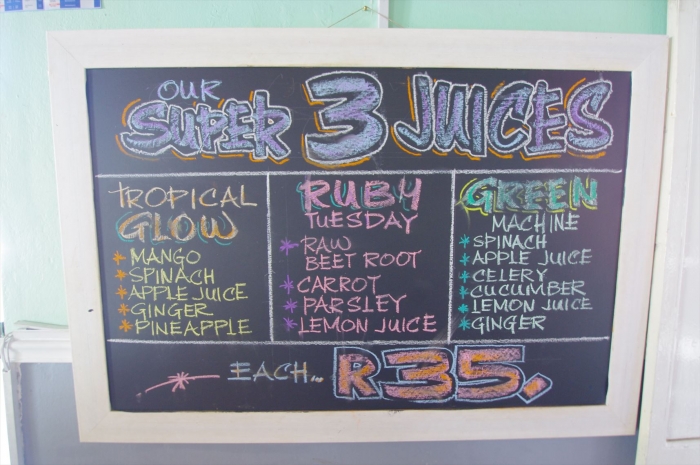 OUR
SUPER 3 JUICES
TROPICAL
GLOW
* MANGO
* SPINACH
* APPLE JUICE
* GINGER
* PINEAPPLE
RUBY
TUESDAY
* RAW
BEET ROOT
* CARROT
* PARSLEY
* LEMON JUICE
GREEN
MACHINE
* SPINACH
* APPLE JUICE
* CELERY
* CUCUMBER
* LEMON JUICE
* GINGER
EACH... R35.